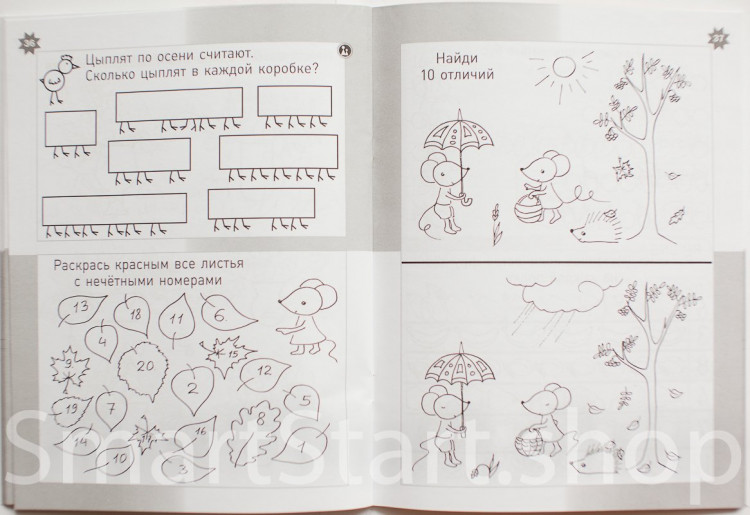 36
Цыплят по осени считают.
Сколько цыплят в каждой коробке?
Раскрась красным все листья
с нечётными номерами
13
18
11
6.
4
9.
20
15
2
12
5
19
7
8
14
16
1
10
3.
37
Найди
10 отличий
SmartStart.shop